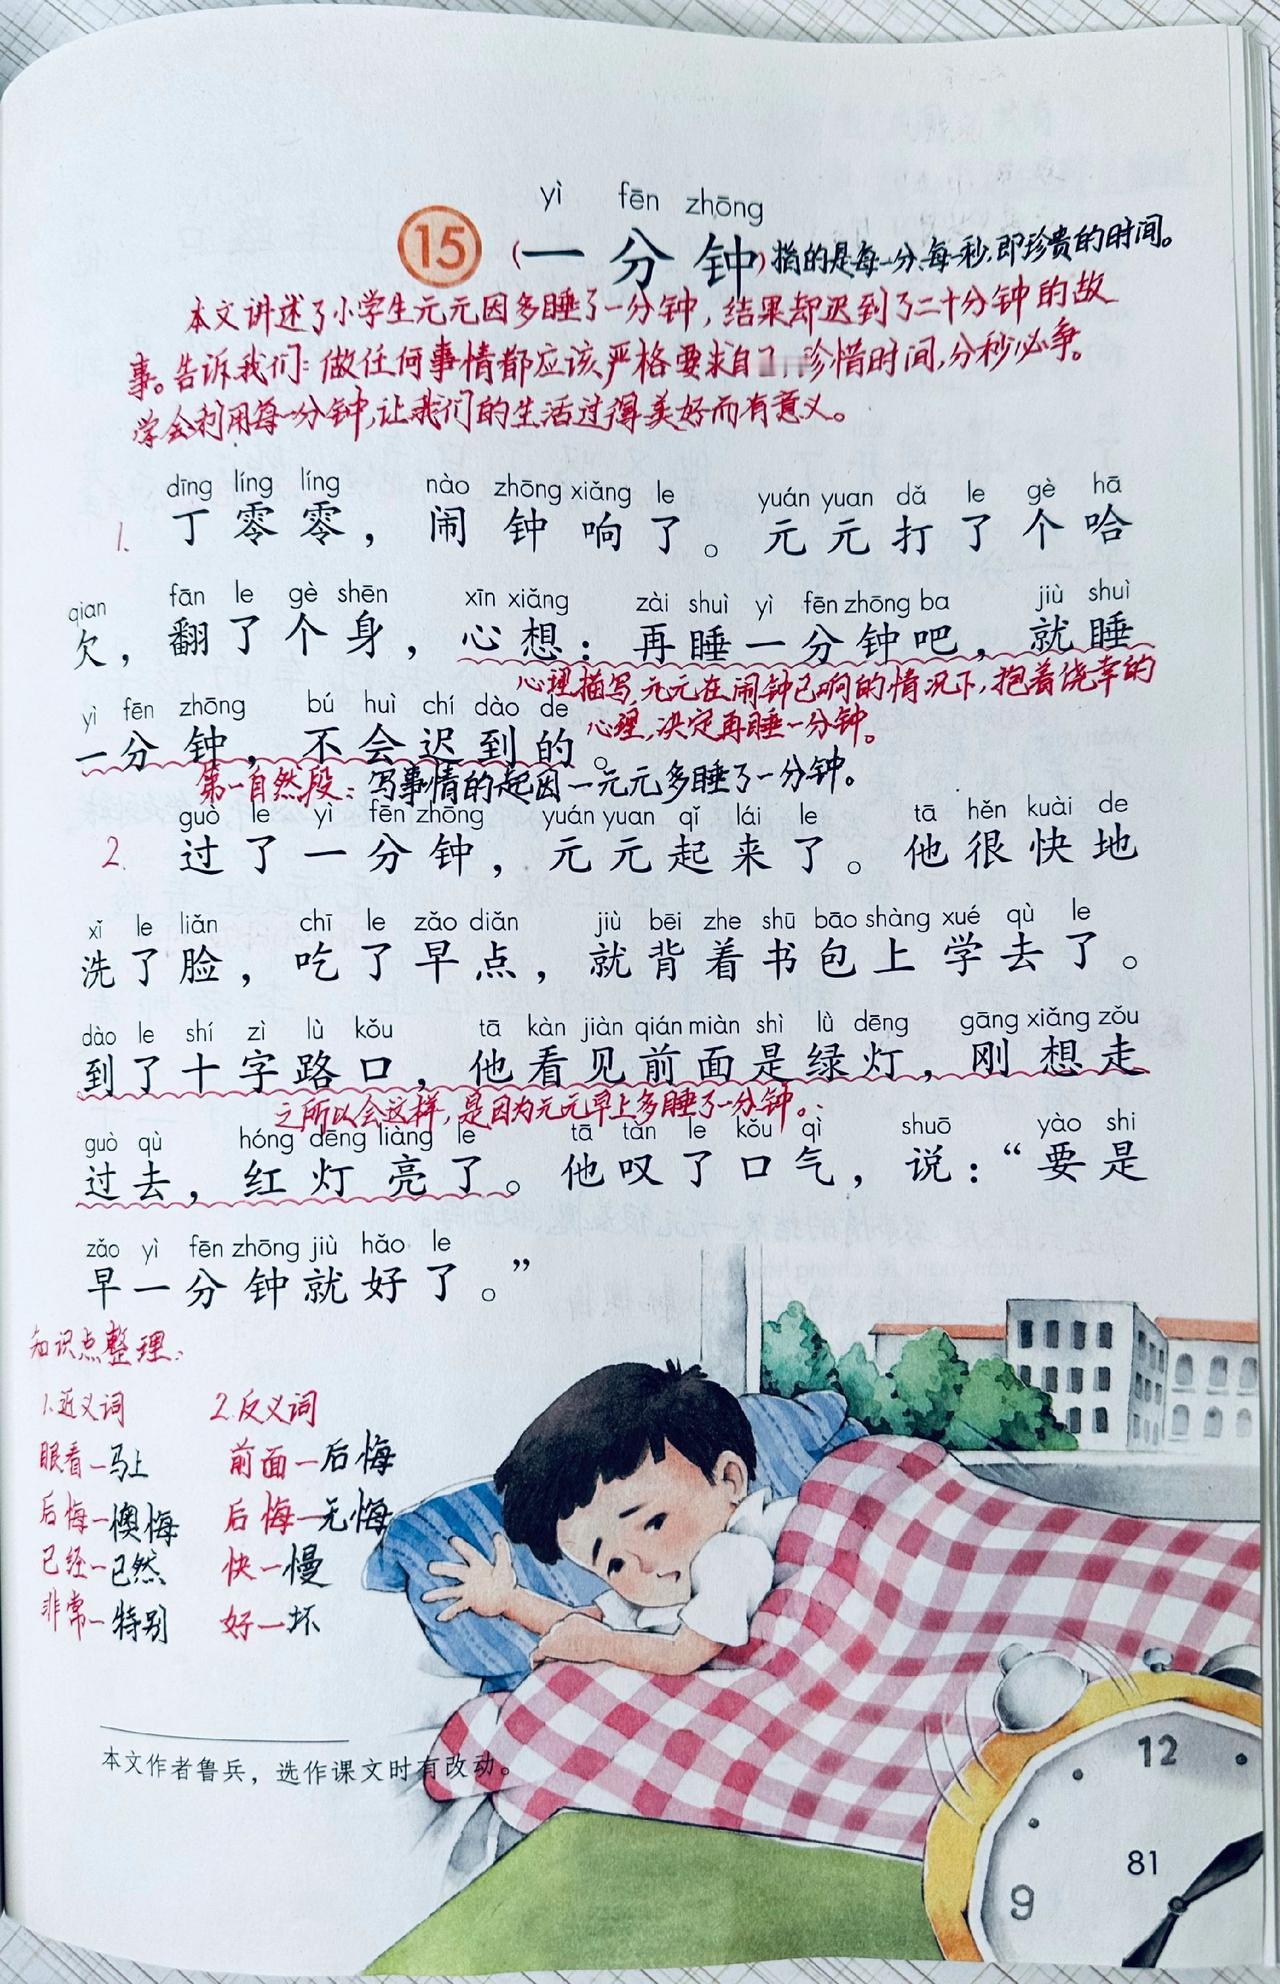 yì fēn zhōng
15 (一分钟)指的是每一分、每一秒,即珍贵的时间。
本文讲述了小学生元元因多睡了一分钟,结果却迟到了二十分钟的故
事。告诉我们:做任何事情都应该严格要求自 珍惜时间,分秒必争。
学会利用每一分钟,让我们的生活过得美好而有意义。
dīng líng líng nào zhōng xiǎng le yuán yuan dǎ le gè hā
1. 丁零零,闹钟响了。元元打了个哈
qian fān le gè shēn xīn xiǎng zài shuì yì fēn zhōng ba jiù shuì
欠,翻了个身,心想:再睡一分钟吧,就睡
心理描写,元元在闹钟已响的情况下,抱着侥幸的
yì fēn zhōng bú huì chí dào de
心理,决定再睡一分钟。
一分钟,不会迟到的。
第一自然段:写事情的起因一元元多睡了一分钟。
guò le yì fēn zhōng yuán yuan qǐ lái le tā hěn kuài de
2. 过了一分钟,元元起来了。他很快地
xǐ le liǎn chī le zǎo diǎn jiù bēi zhe shū bāo shàng xué qù le
洗了脸,吃了早点,就背着书包上学去了。
dào le shí zì lù kǒu tā kàn jiàn qián miàn shì lǜ dēng gāng xiǎng zǒu
到了十字路口,他看见前面是绿灯,刚想走
之所以会这样,是因为元元早上多睡了一分钟。
guò qù hóng dēng liàng le tā tàn le kǒu qì shuō yào shi
过去,红灯亮了。他叹了口气,说:“要是
zǎo yì fēn zhōng jiù hǎo le
早一分钟就好了。”
知识点整理:
1.近义词 2.反义词
眼看一马上 前面一后悔
后悔一懊悔 后悔一无悔
已经一已然 快一慢
非常一特别 好一坏
本文作者鲁兵,选作课文时有改动。
12
9
81